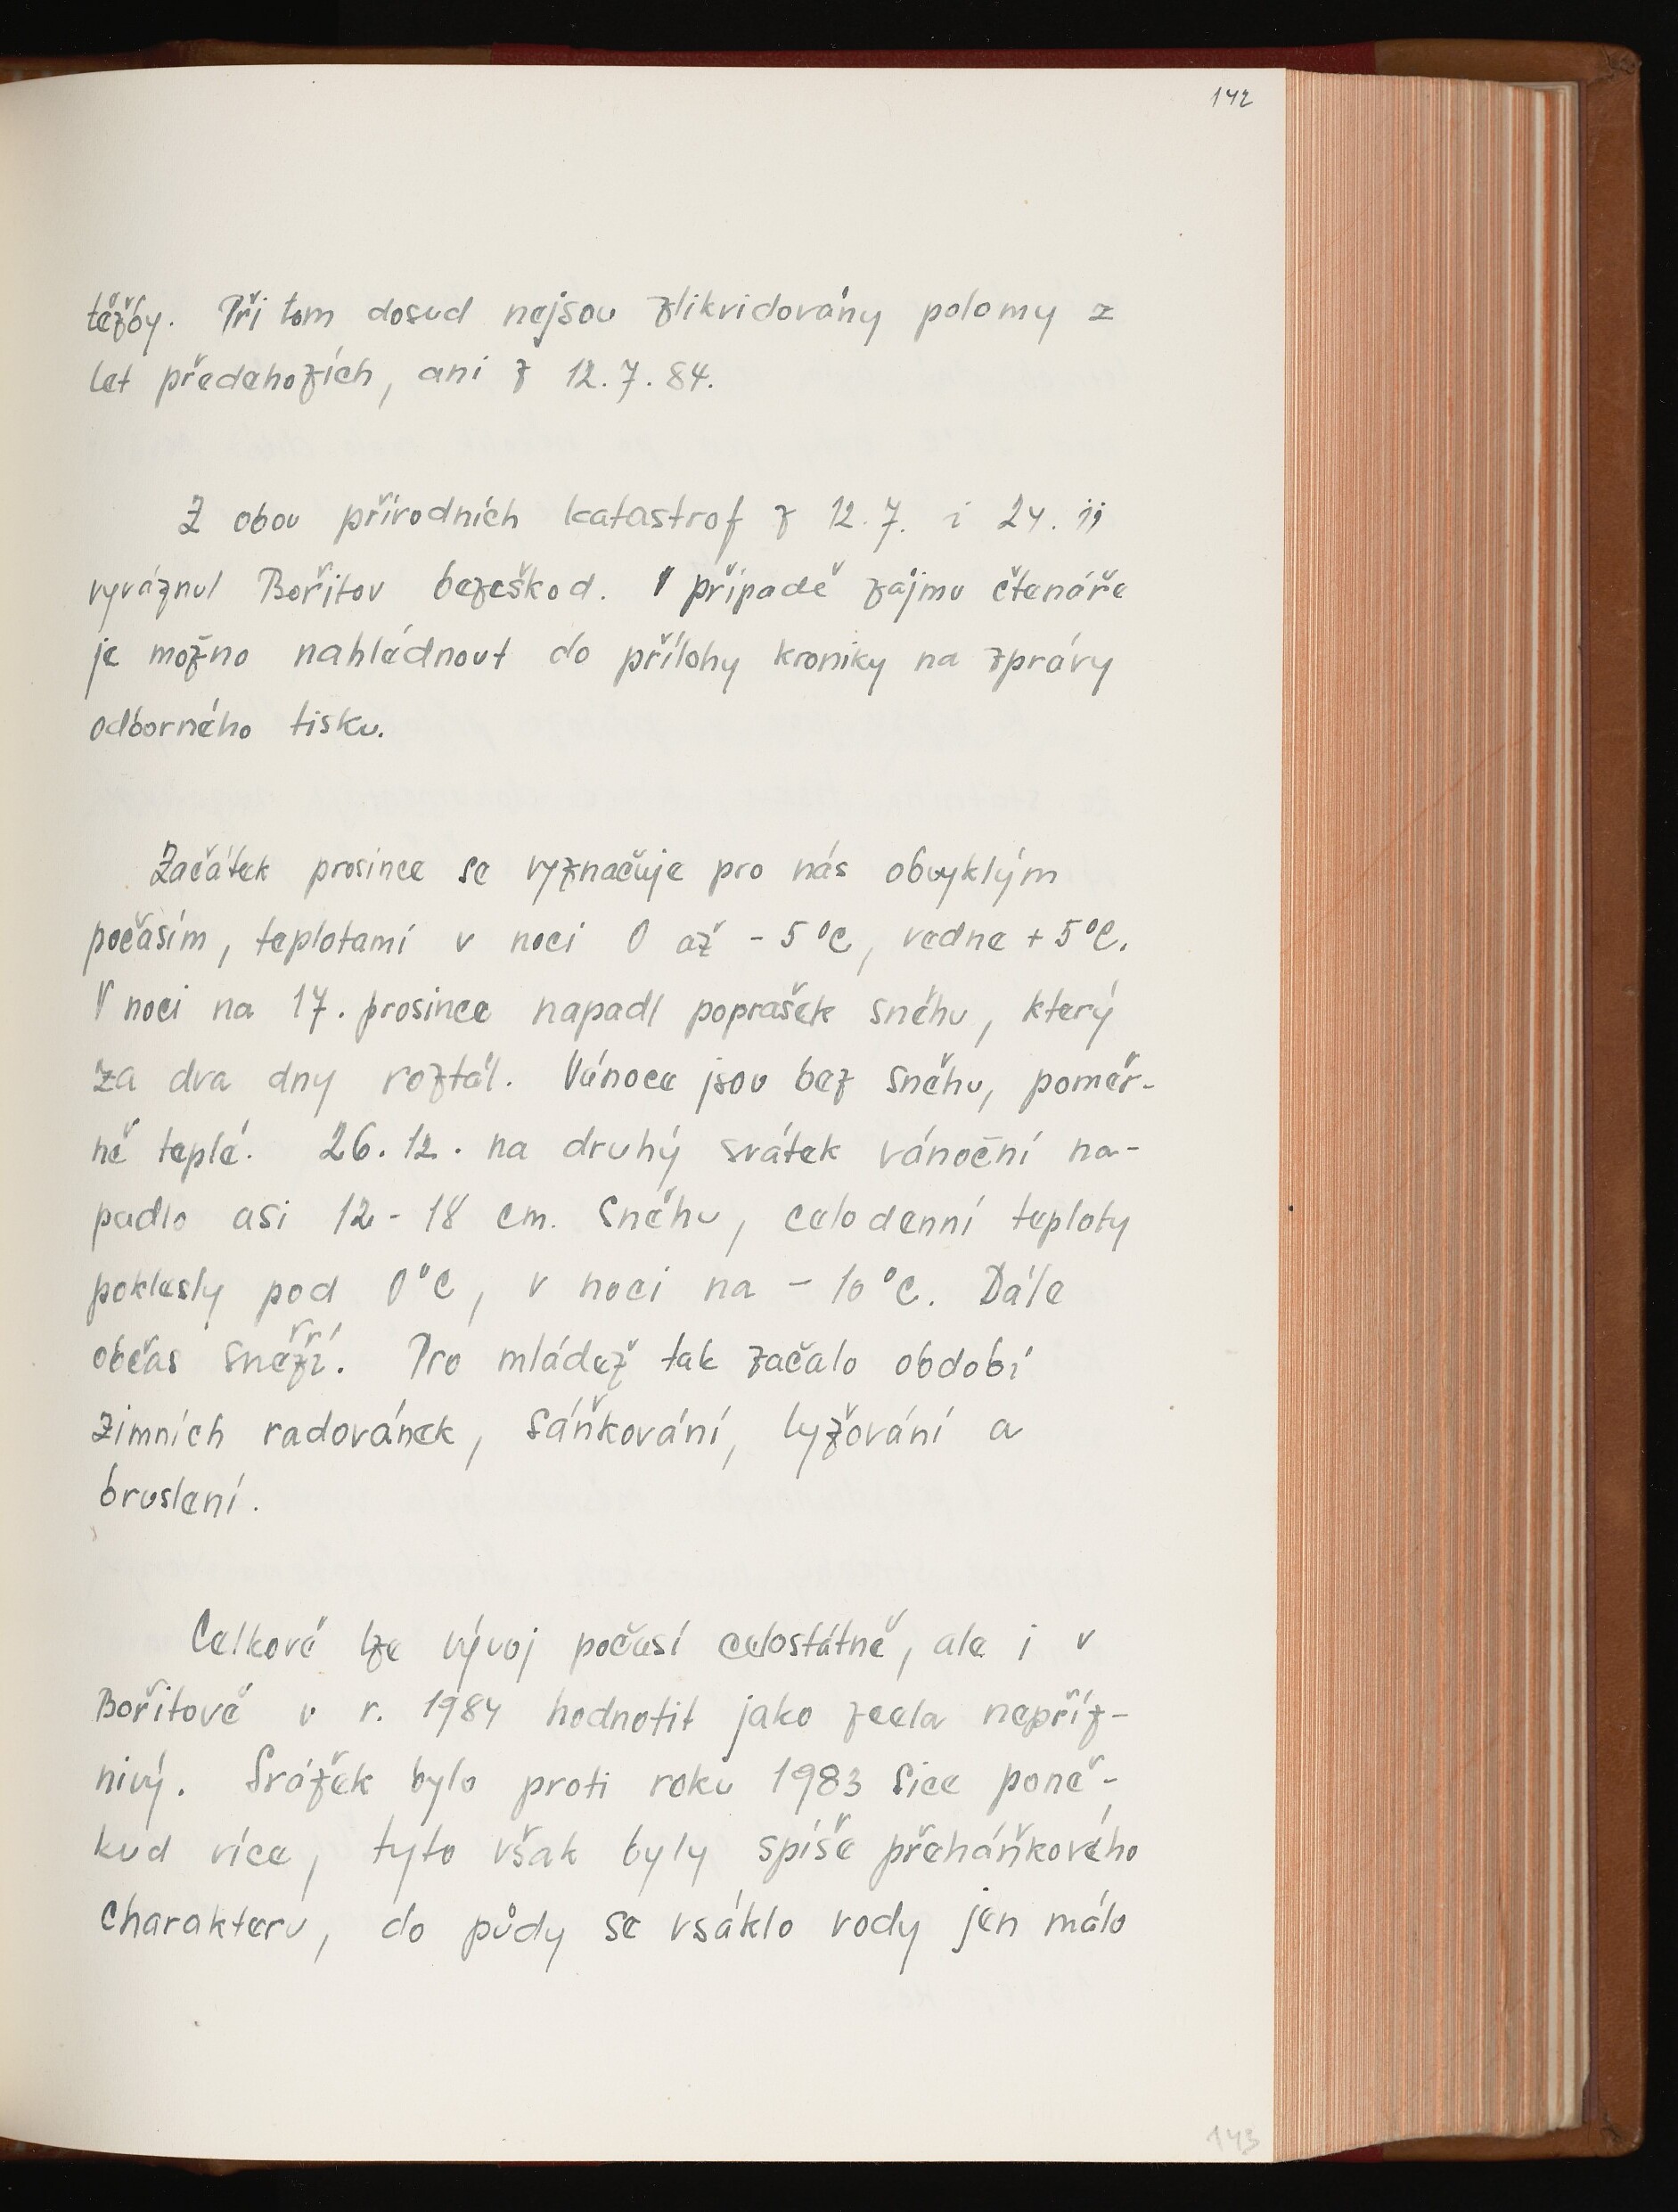 142
těžby. Při tom dosud nejsou zlikvidovány polomy z
let předchozích, ani z 12.7.84.
Z obou přírodních katastrof z 12.7. i 24. ii
vyváznul Bořitov bezeškod. V případě zájmu čtenáře
je možno nahlédnout do přílohy kroniky na zprávy
odborného tisku.
Začátek prosince se vyznačuje pro nás obvyklým
počasím, teplotami v noci 0 až -5°C, vedne +5°C.
V noci na 17. prosince napadl poprašek sněhu, který
za dva dny roztál. Vánoce jsou bez sněhu, poměr-
ně teplé. 26.12. na druhý svátek vánoční na-
padlo asi 12-18 cm. sněhu, celodenní teploty
poklesly pod 0°C, v noci na -10°C. Dále
občas sněží. Pro mládež tak začalo období
zimních radovánek, sáňkování, lyžování a
bruslení.
Celkově lze vývoj počasí celostátně, ale i v
Bořitově v r. 1984 hodnotit jako zcela nepříz-
nivý. Srážek bylo proti roku 1983 sice poně-
kud více, tyto však byly spíše přeháňkového
charakteru, do půdy se vsáklo vody jen málo
143